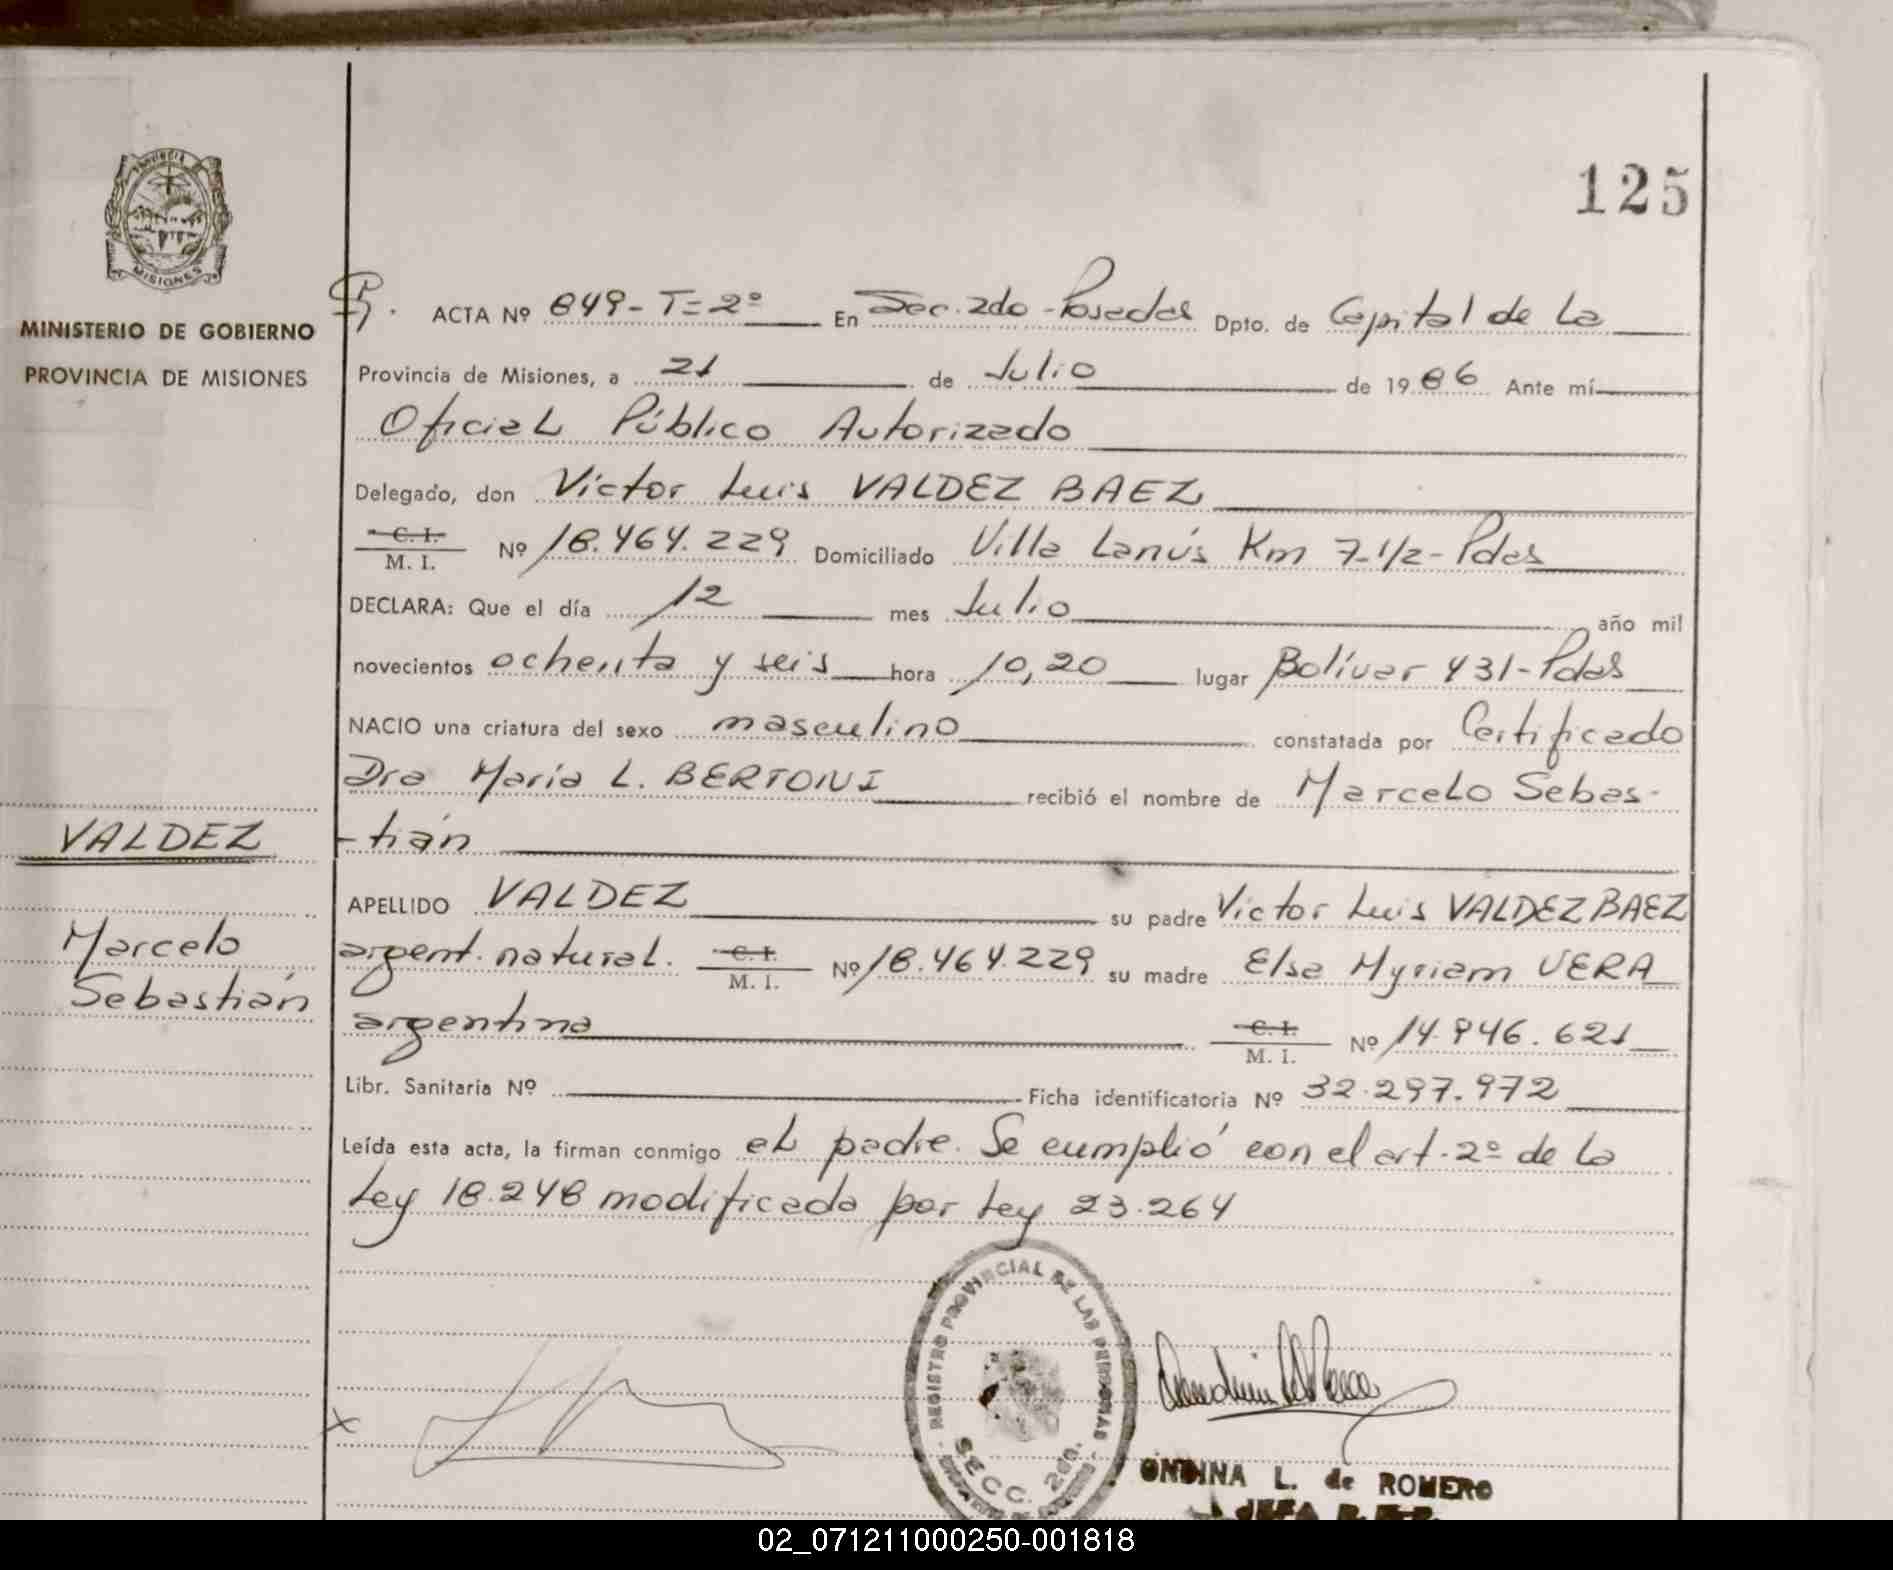 125
PROVINCIA
MISIONES
MINISTERIO DE GOBIERNO
PROVINCIA DE MISIONES
ACTA Nº 849 - T=2º En Sec. 2do - Posadas Dpto. de Capital de La
Provincia de Misiones, a 21 de Julio de 1986 Ante mí
Oficial Público Autorizado
Delegado, don Víctor Luis VALDEZ BAEZ
C. I.
M. I. Nº 18.464.229 Domiciliado Villa Lanús Km 7-1/2 - Pdas
DECLARA: Que el día 12 mes Julio año mil
novecientos ochenta y seis hora 10,20 lugar Bolívar 431 - Pdas
NACIO una criatura del sexo masculino constatada por Certificado
Dra María L. BERTONI recibió el nombre de Marcelo Sebas-
-tián
APELLIDO VALDEZ su padre Víctor Luis VALDEZ BAEZ
argent. natural. C. I. M. I. Nº 18.464.229 su madre Elsa Myriam VERA
argentina C. I. M. I. Nº 14.946.621
Libr. Sanitaria Nº Ficha identificatoria Nº 32.297.972
Leída esta acta, la firman conmigo el padre. Se cumplió con el art. 2º de la
Ley 18.248 modificada por Ley 23.264
VALDEZ
Marcelo
Sebastián
REGISTRO PROVINCIAL DE LAS PERSONAS
SECC. 2da.
X
ONDINA L. de ROMERO
JEFA
02_071211000250-001818